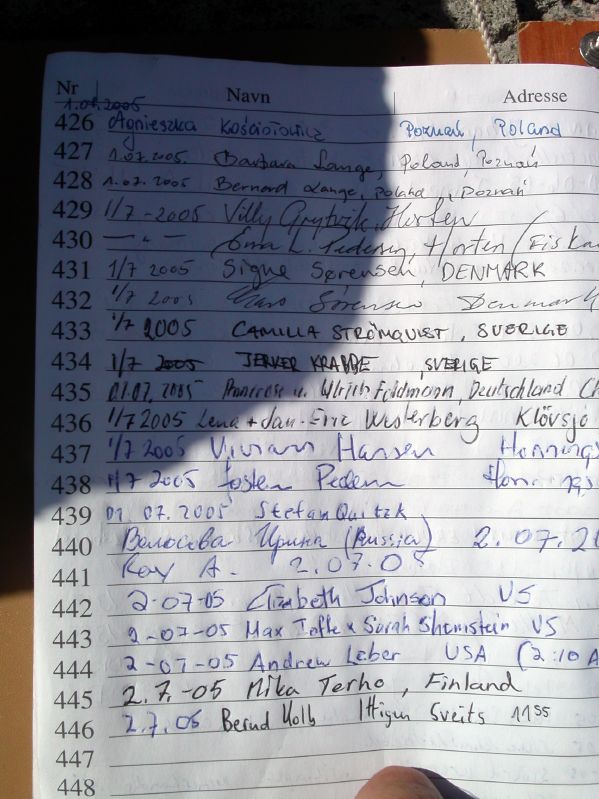 Nr Navn Adresse
1.07.2005
426 Agnieszka Kościołowicz Poznań, Poland
427 1.07.2005. Barbara Lange, Poland, Poznań
428 1.07.2005 Bernard Lange, Poland, Poznań
429 1/7-2005 Villy Horten
430 — " — L. Pedersen, Horten
431 1/7 2005 Signe Sørensen, DENMARK
432 1/7 2005 Sørensen Denmark
433 1/7 2005 CAMILLA STRÖMQUIST, SVERIGE
434 1/7 2005 JERKER KRABBE SVERIGE
435 01.07.2005 u. Ulrich Feldmann, Deutschland
436 1/7 2005 Lena + Jan-Eric Westerberg Klövsjö
437 1/7 2005 Vivian Hansen Honnings
438 1/7 2005
439 01 07.2005 Stefan Quitzk
440 Ирина (Russia) 2.07.20
441 Roy A. 2.07.05
442 2-07-05 Elizabeth Johnson US
443 2-07-05 Max Tofte & Sarah Shernstein US
444 2-07-05 Andrew Leber USA (2:10 A
445 2.7.-05 Mika Terho, Finland
446 2.7.05 Bernd Kolb Ittigen Sveits 11 55
447
448